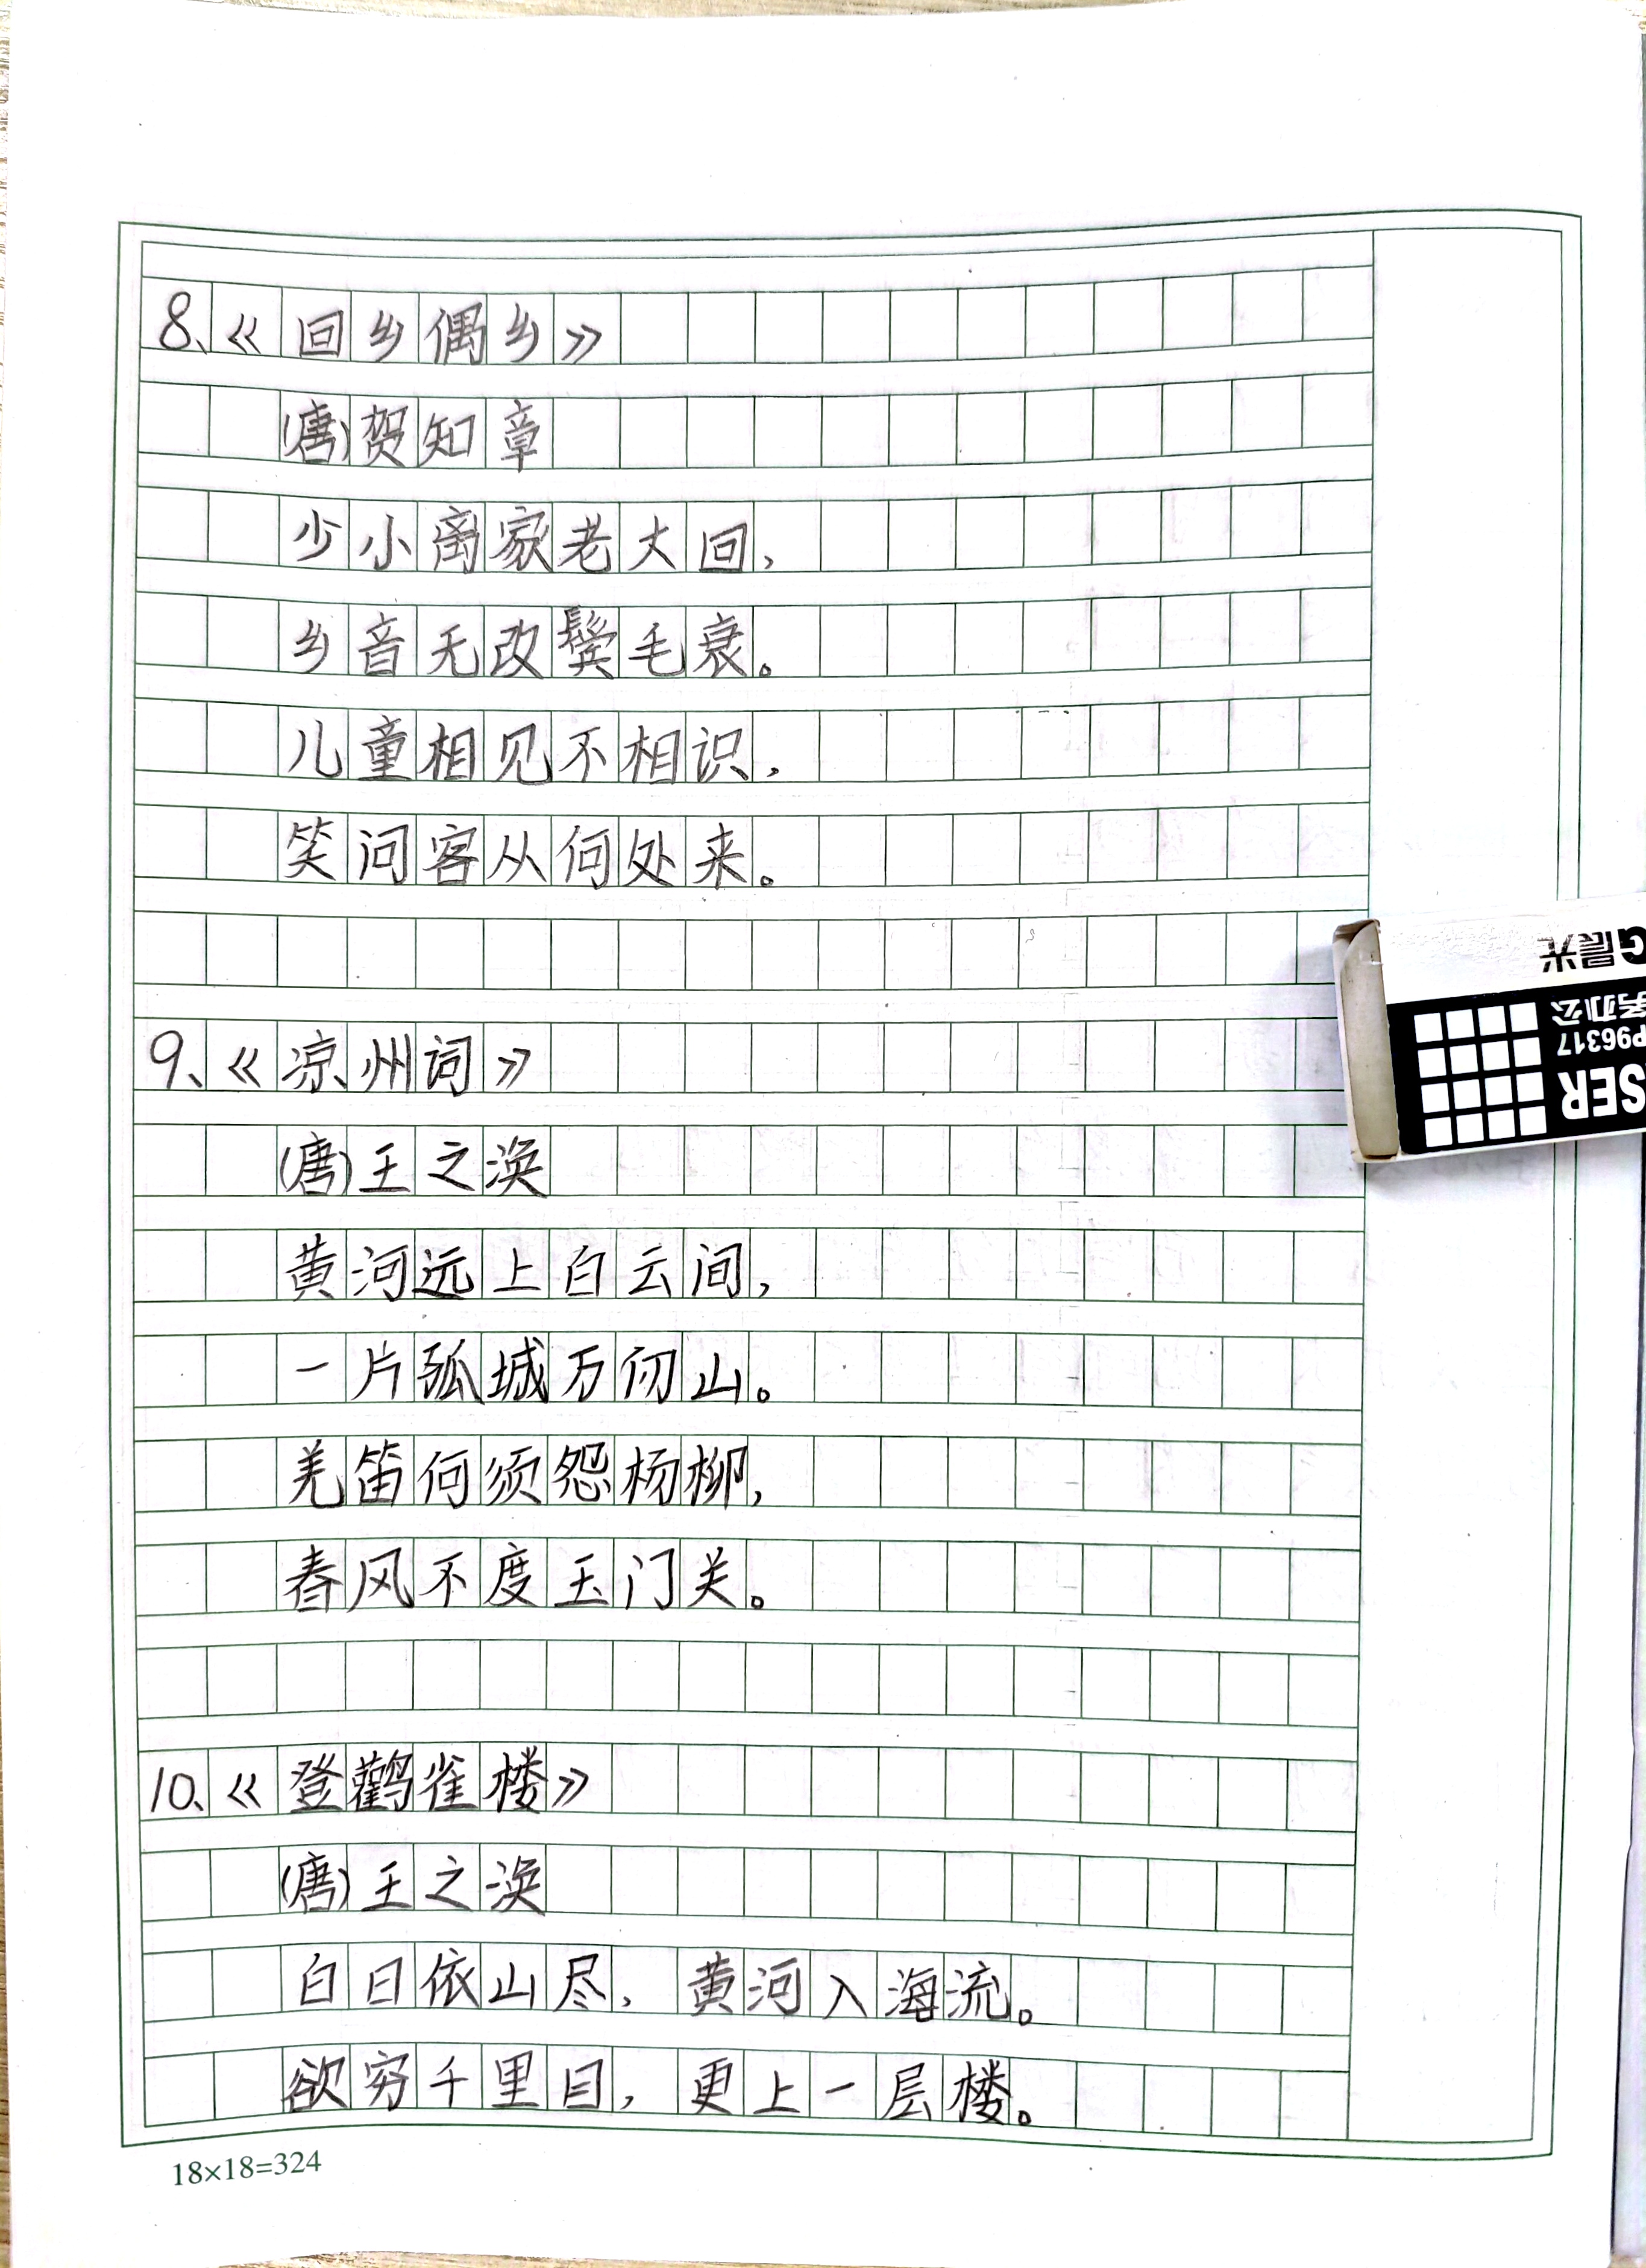 8、《回乡偶乡》
(唐)贺知章
少小离家老大回,
乡音无改鬓毛衰。
儿童相见不相识,
笑问客从何处来。
9、《凉州词》
(唐)王之涣
黄河远上白云间,
一片孤城万仞山。
羌笛何须怨杨柳,
春风不度玉门关。
10、《登鹳雀楼》
(唐)王之涣
白日依山尽, 黄河入海流。
欲穷千里目, 更上一层楼。
18×18=324
G晨光
务办公
P96317
SER